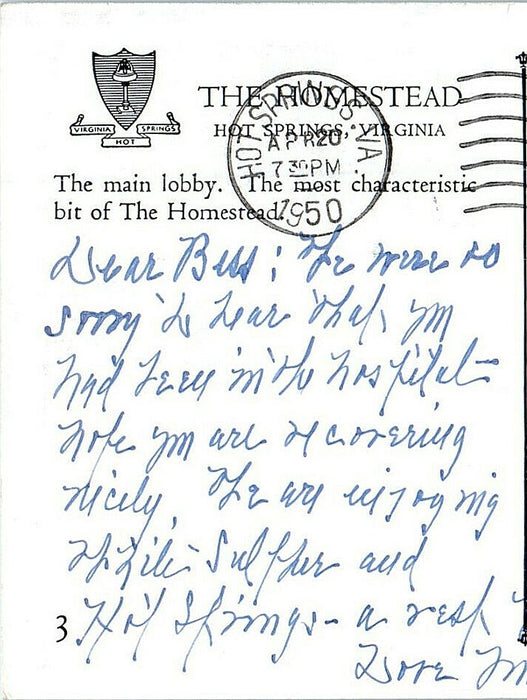 VIRGINIA HOT SPRINGS
THE HOMESTEAD
HOT SPRINGS, VIRGINIA
HOT SPRINGS, VA.
APR 20
7 30 PM
1950
The main lobby. The most characteristic
bit of The Homestead.
Dear Bess: We were so
sorry to hear that you
had been in the hospital-
hope you are recovering
nicely. We are enjoying
White Sulpher and
3 Hot Springs - a rest
Love